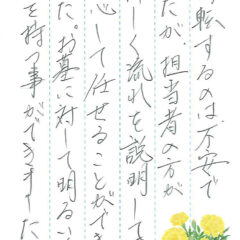 転するのは不安で
たが、担当者の方が
しく流れを説明して
心して任せることができ
た。お墓に対して明るい
を持つ事ができました